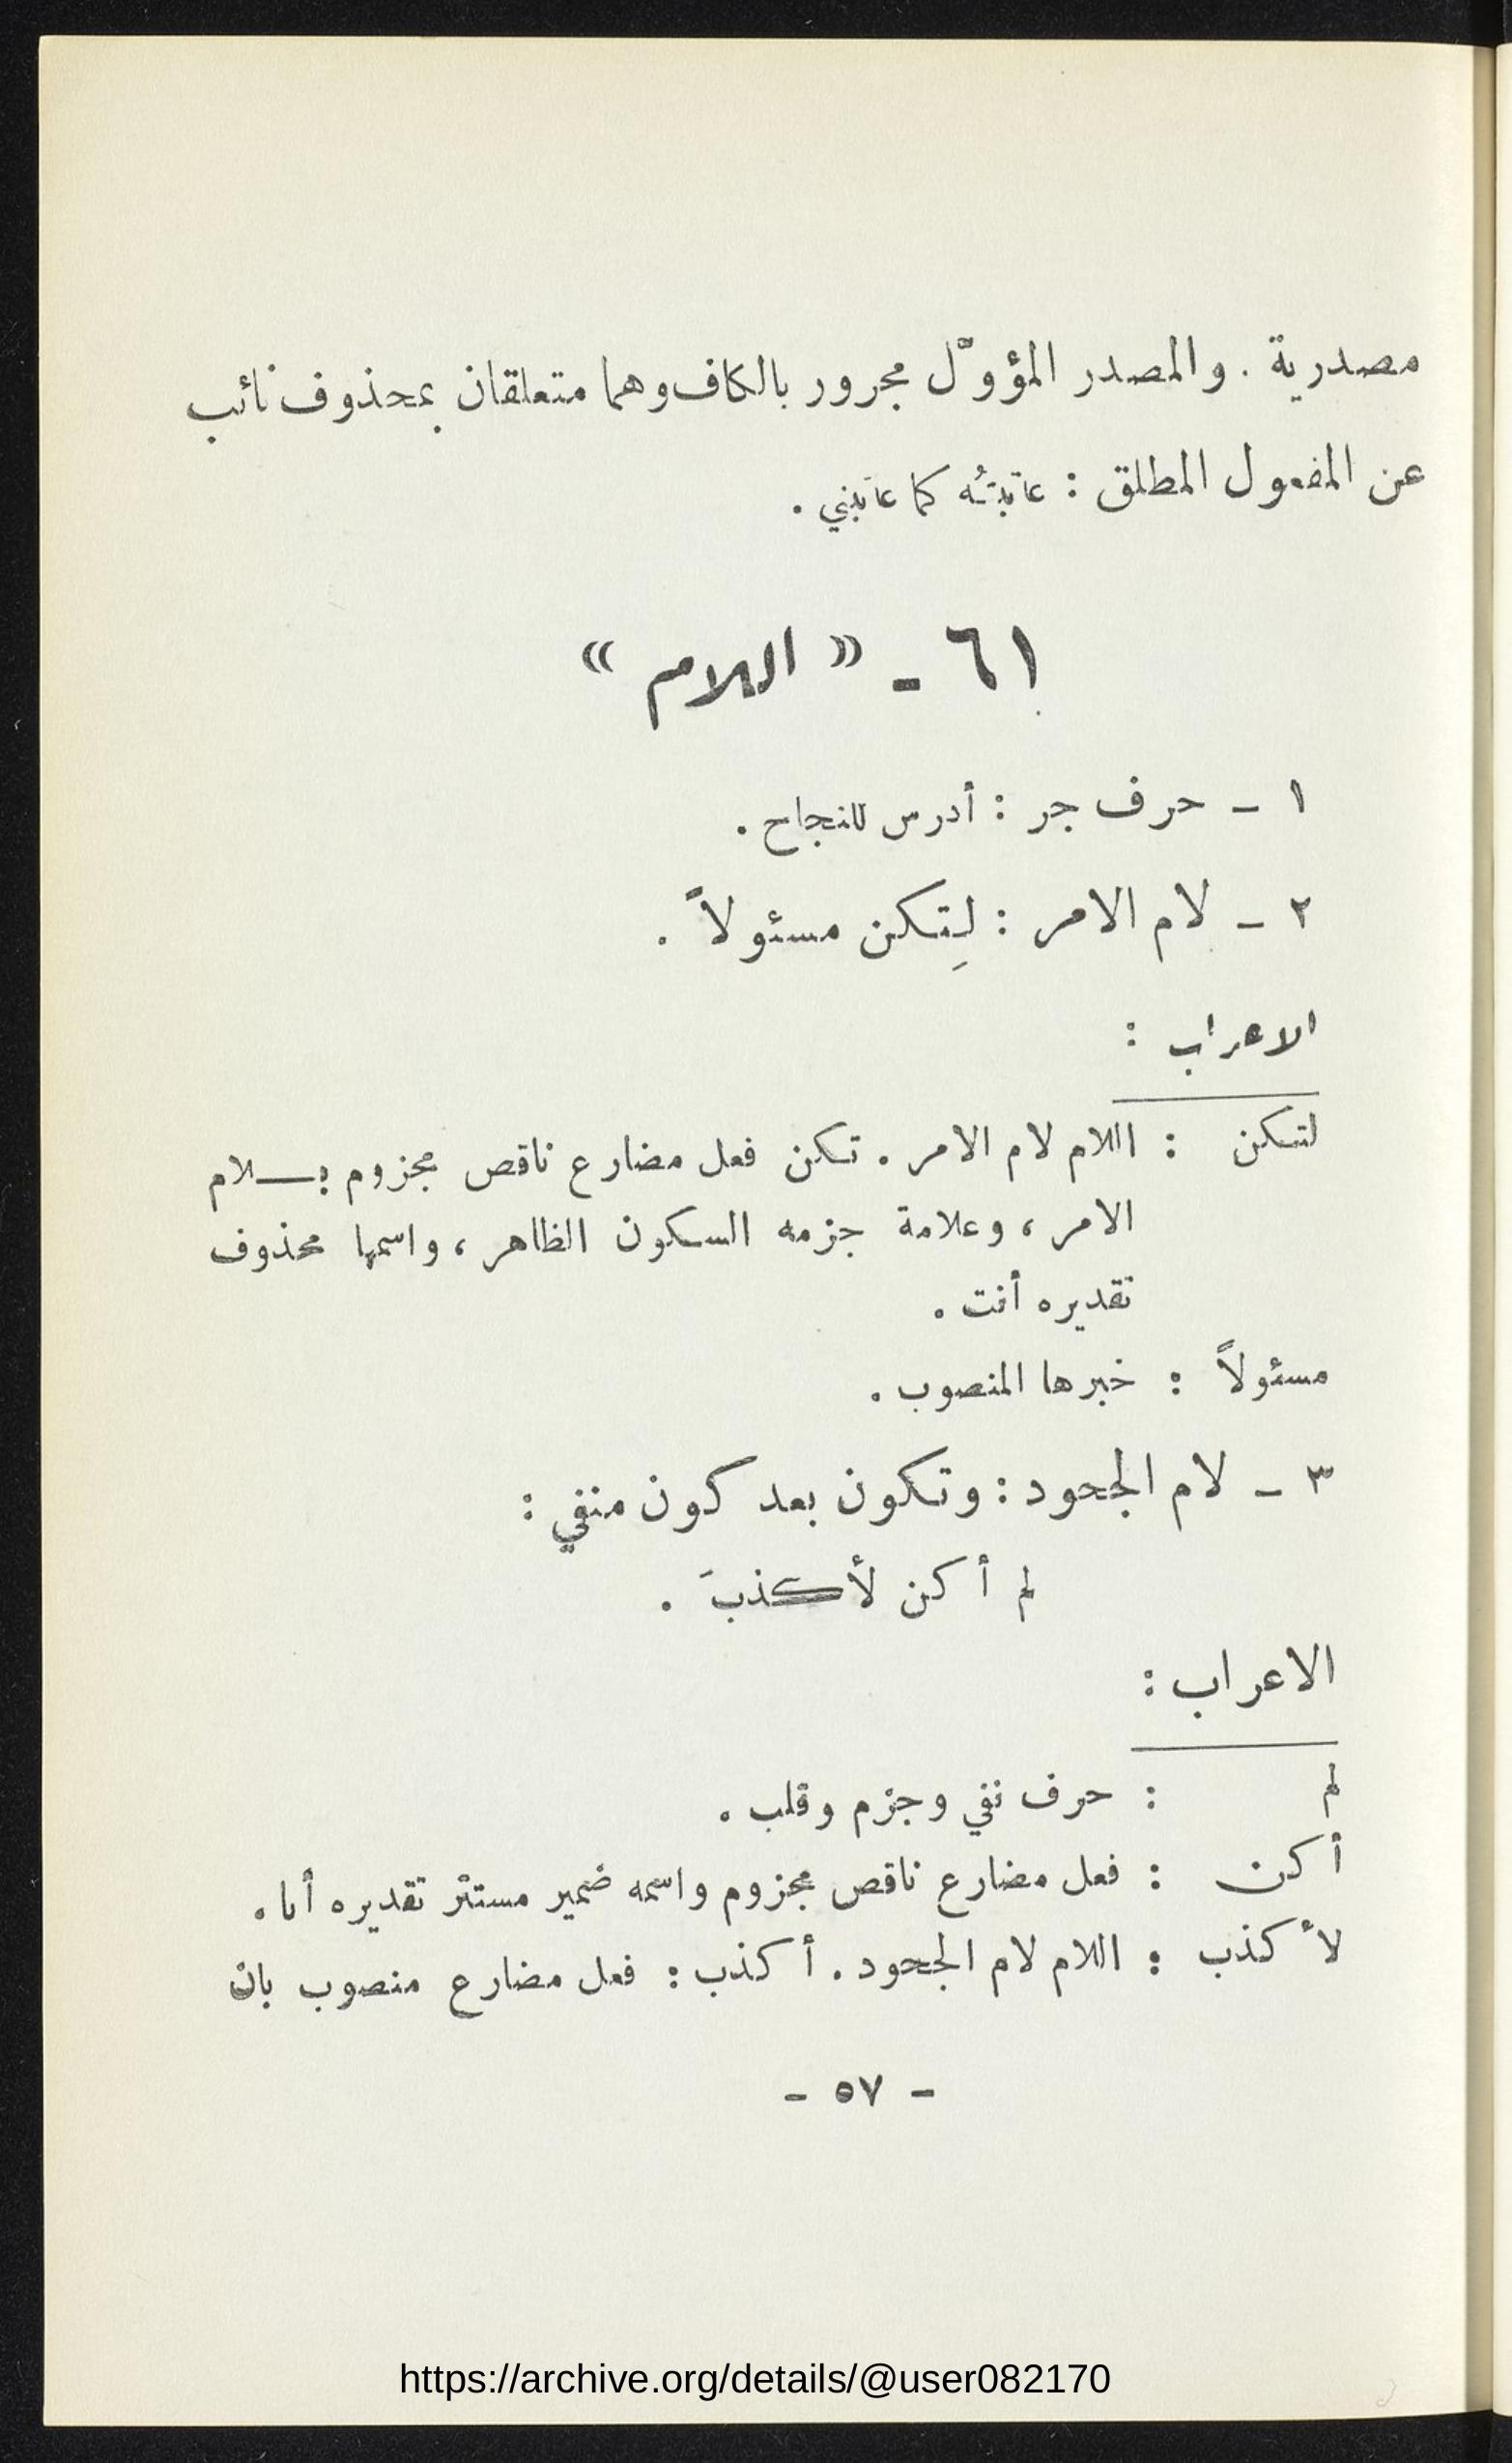 مصدرية . والمصدر المؤوّل مجرور بالكاف وهما متعلقان بمحذوف نائب
عن المفعول المطلق : عاتبتُه كما عاتبَني .
٦١ - « اللام »
١ - حرف جر : أدرس للنجاح .
٢ - لام الامر : لِتكن مسئولاً .
الاعراب :
لتكن : اللام لام الامر . تكن فعل مضارع ناقص مجزوم بـلام
الامر ، وعلامة جزمه السكون الظاهر ، واسمها محذوف
تقديره أنت .
مسئولاً : خبرها المنصوب .
٣ - لام الجحود : وتكون بعد كون منفي :
لم أكن لأكذبَ .
الاعراب :
لم : حرف نفي وجزم وقلب .
أكن : فعل مضارع ناقص مجزوم واسمه ضمير مستتر تقديره أنا .
لأكذب : اللام لام الجحود . أكذب : فعل مضارع منصوب بان
- ٥٧ -
https://archive.org/details/@user082170